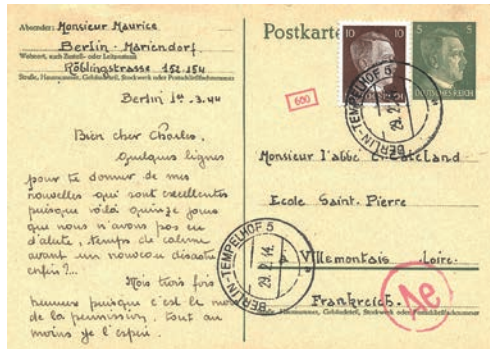 Absender: Monsieur Maurice
Berlin - Mariendorf
Wohnort, auch Zustell- oder Leitpostamt
Röblingstrasse 152-154
Straße, Hausnummer, Gebäudeteil, Stockwerk oder Postschließfachnummer
Berlin 1er. 3. 44
Bien cher Charles.
Quelques lignes
pour te donner de mes
nouvelles qui sont excellentes
puisque voilà quinze jours
que nous n'avons pas eu
d'alerte, temps de calme
avant un nouveau désastre
enfin ?...
Mois trois fois
heureux puisque c'est le mois
de la permission. tout au
moins je l'espère.
Postkarte
10 10
5 5
DEUTSCHES REICH
BERLIN-TEMPELHOF 5
29. 2.
600
Monsieur l'abbé C. Cateland
Ecole Saint. Pierre
à Villemontais Loire.
Frankreich.
Straße, Hausnummer, Gebäudeteil, Stockwerk oder Postschließfachnummer
BERLIN-TEMPELHOF 5
29. 2. 44.
Ae